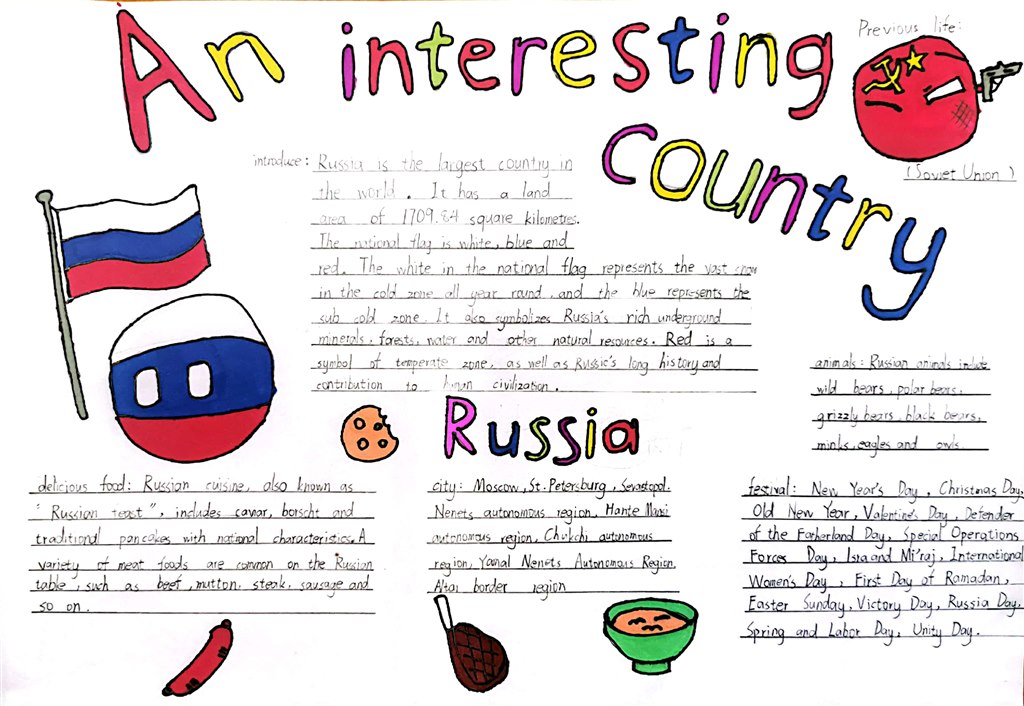 An interesting
country
Previous life:
(Soviet Union)
introduce: Russia is the largest country in
the world. It has a land
area of 1709.84 square kilometres.
The national flag is white, blue and
red. The white in the national flag represents the vast snow
in the cold zone all year round. and the blue represents the
sub cold zone. It also symbolizes Russia's rich underground
minerals. forests, water and other natural resources. Red is a
symbol of temperate zone, as well as Russie's long history and
contribution to civilization.
Russia
animals: Russian animals include
wild bears, polar bears,
grizzly bears, black bears,
minks, eagles and owls.
delicious food: Russian cuisine, also known as
"Russian teast", includes caviar, borscht and
traditional pancakes with national characteristics. A
variety of meat foods are common on the Russian
table, such as beef, mutton. steak, sausage and
so on.
city: Moscow, St. Petersburg, Sevastopol.
Nenets autonomous region, Hante Mansi
autonomous region, Chukchi autonomous
region, Yamal Nenets Autonomous Region.
Altai border region
festival: New Year's Day, Christmas Day,
Old New Year, Valentine's Day, Defender
of the Fatherland Day, Special Operations
Forces Day, Isra and Mi'raj, International
Women's Day, First Day of Ramadan,
Easter Sunday, Victory Day, Russia Day,
Spring and Labor Day, Unity Day.